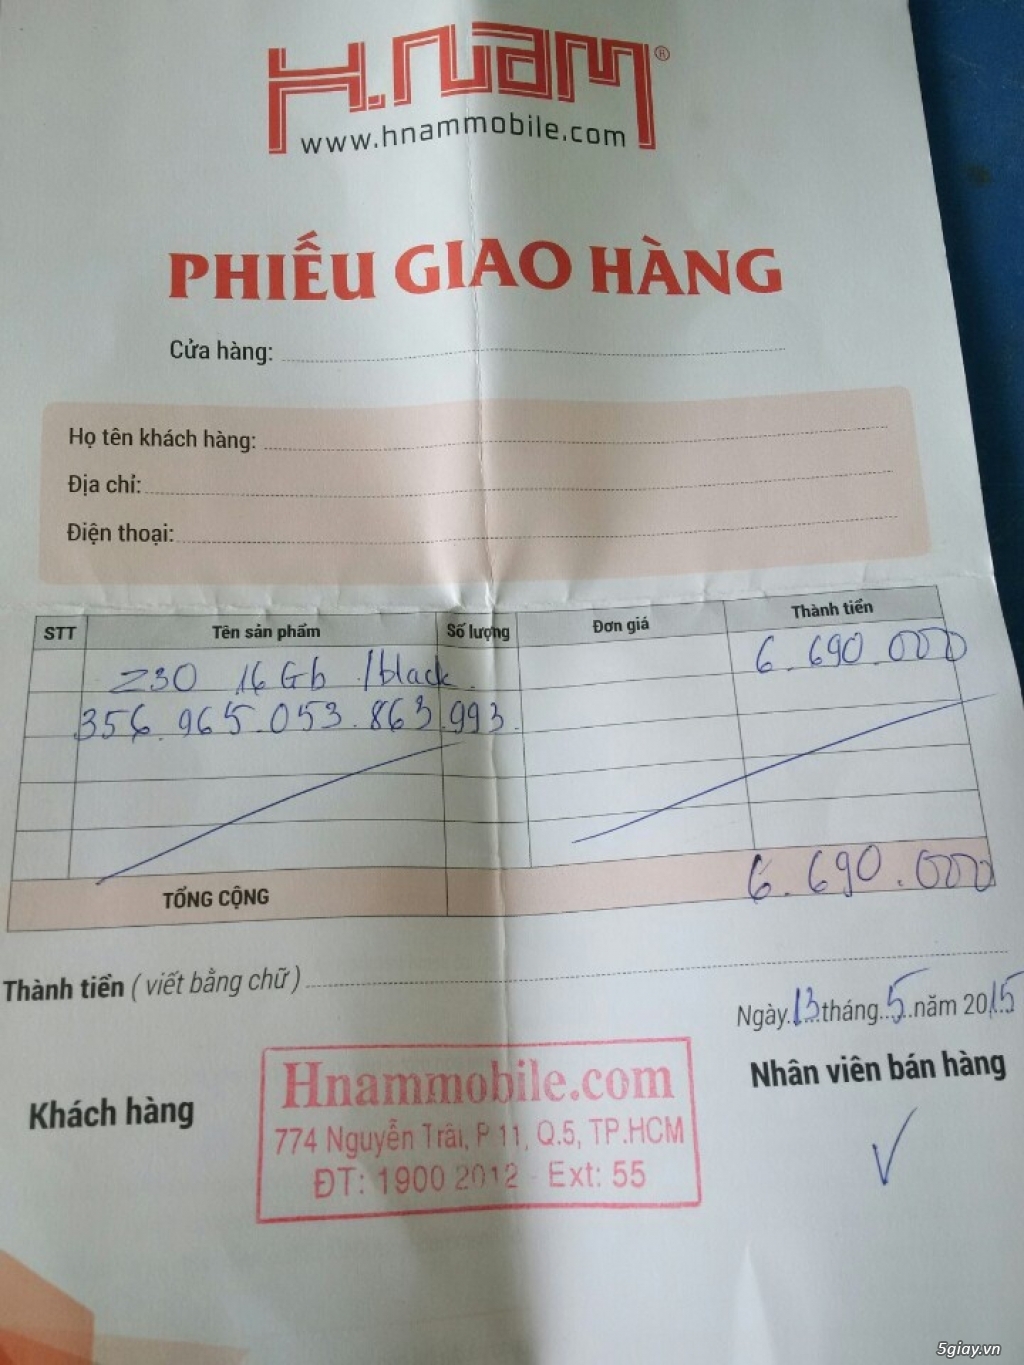 H.nam®
www.hnammobile.com
PHIẾU GIAO HÀNG
Cửa hàng:
Họ tên khách hàng:
Địa chỉ:
Điện thoại:
STT Tên sản phẩm Số lượng Đơn giá Thành tiền
Z30 16Gb /black 6.690.000
356.965.053.863.993
TỔNG CỘNG 6.690.000
Thành tiền ( viết bằng chữ )
Ngày 13 tháng 5 năm 2015
Khách hàng
Nhân viên bán hàng
Hnammobile.com
774 Nguyễn Trãi, P 11, Q.5, TP.HCM
ĐT: 1900 2012 - Ext: 55
5giay.vn